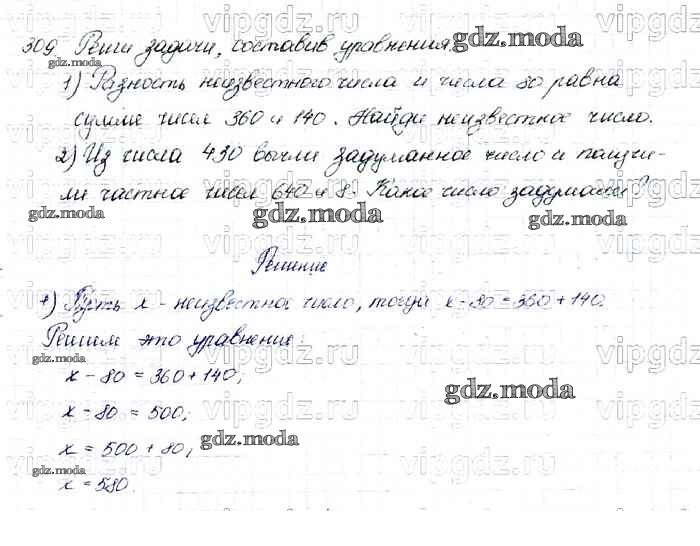 309. Реши задачи, составив уравнения.
1) Разность неизвестного числа и числа 80 равна
сумме чисел 360 и 140. Найди неизвестное число.
2) Из числа 430 вычли задуманное число и получи-
ли частное чисел 640 и 8. Какое число задумали?
Решение
1) Пусть x - неизвестное число, тогда x - 80 = 360 + 140.
Решим это уравнение:
x - 80 = 360 + 140;
x - 80 = 500;
x = 500 + 80;
x = 580.
gdz.moda
vipgdz.ru